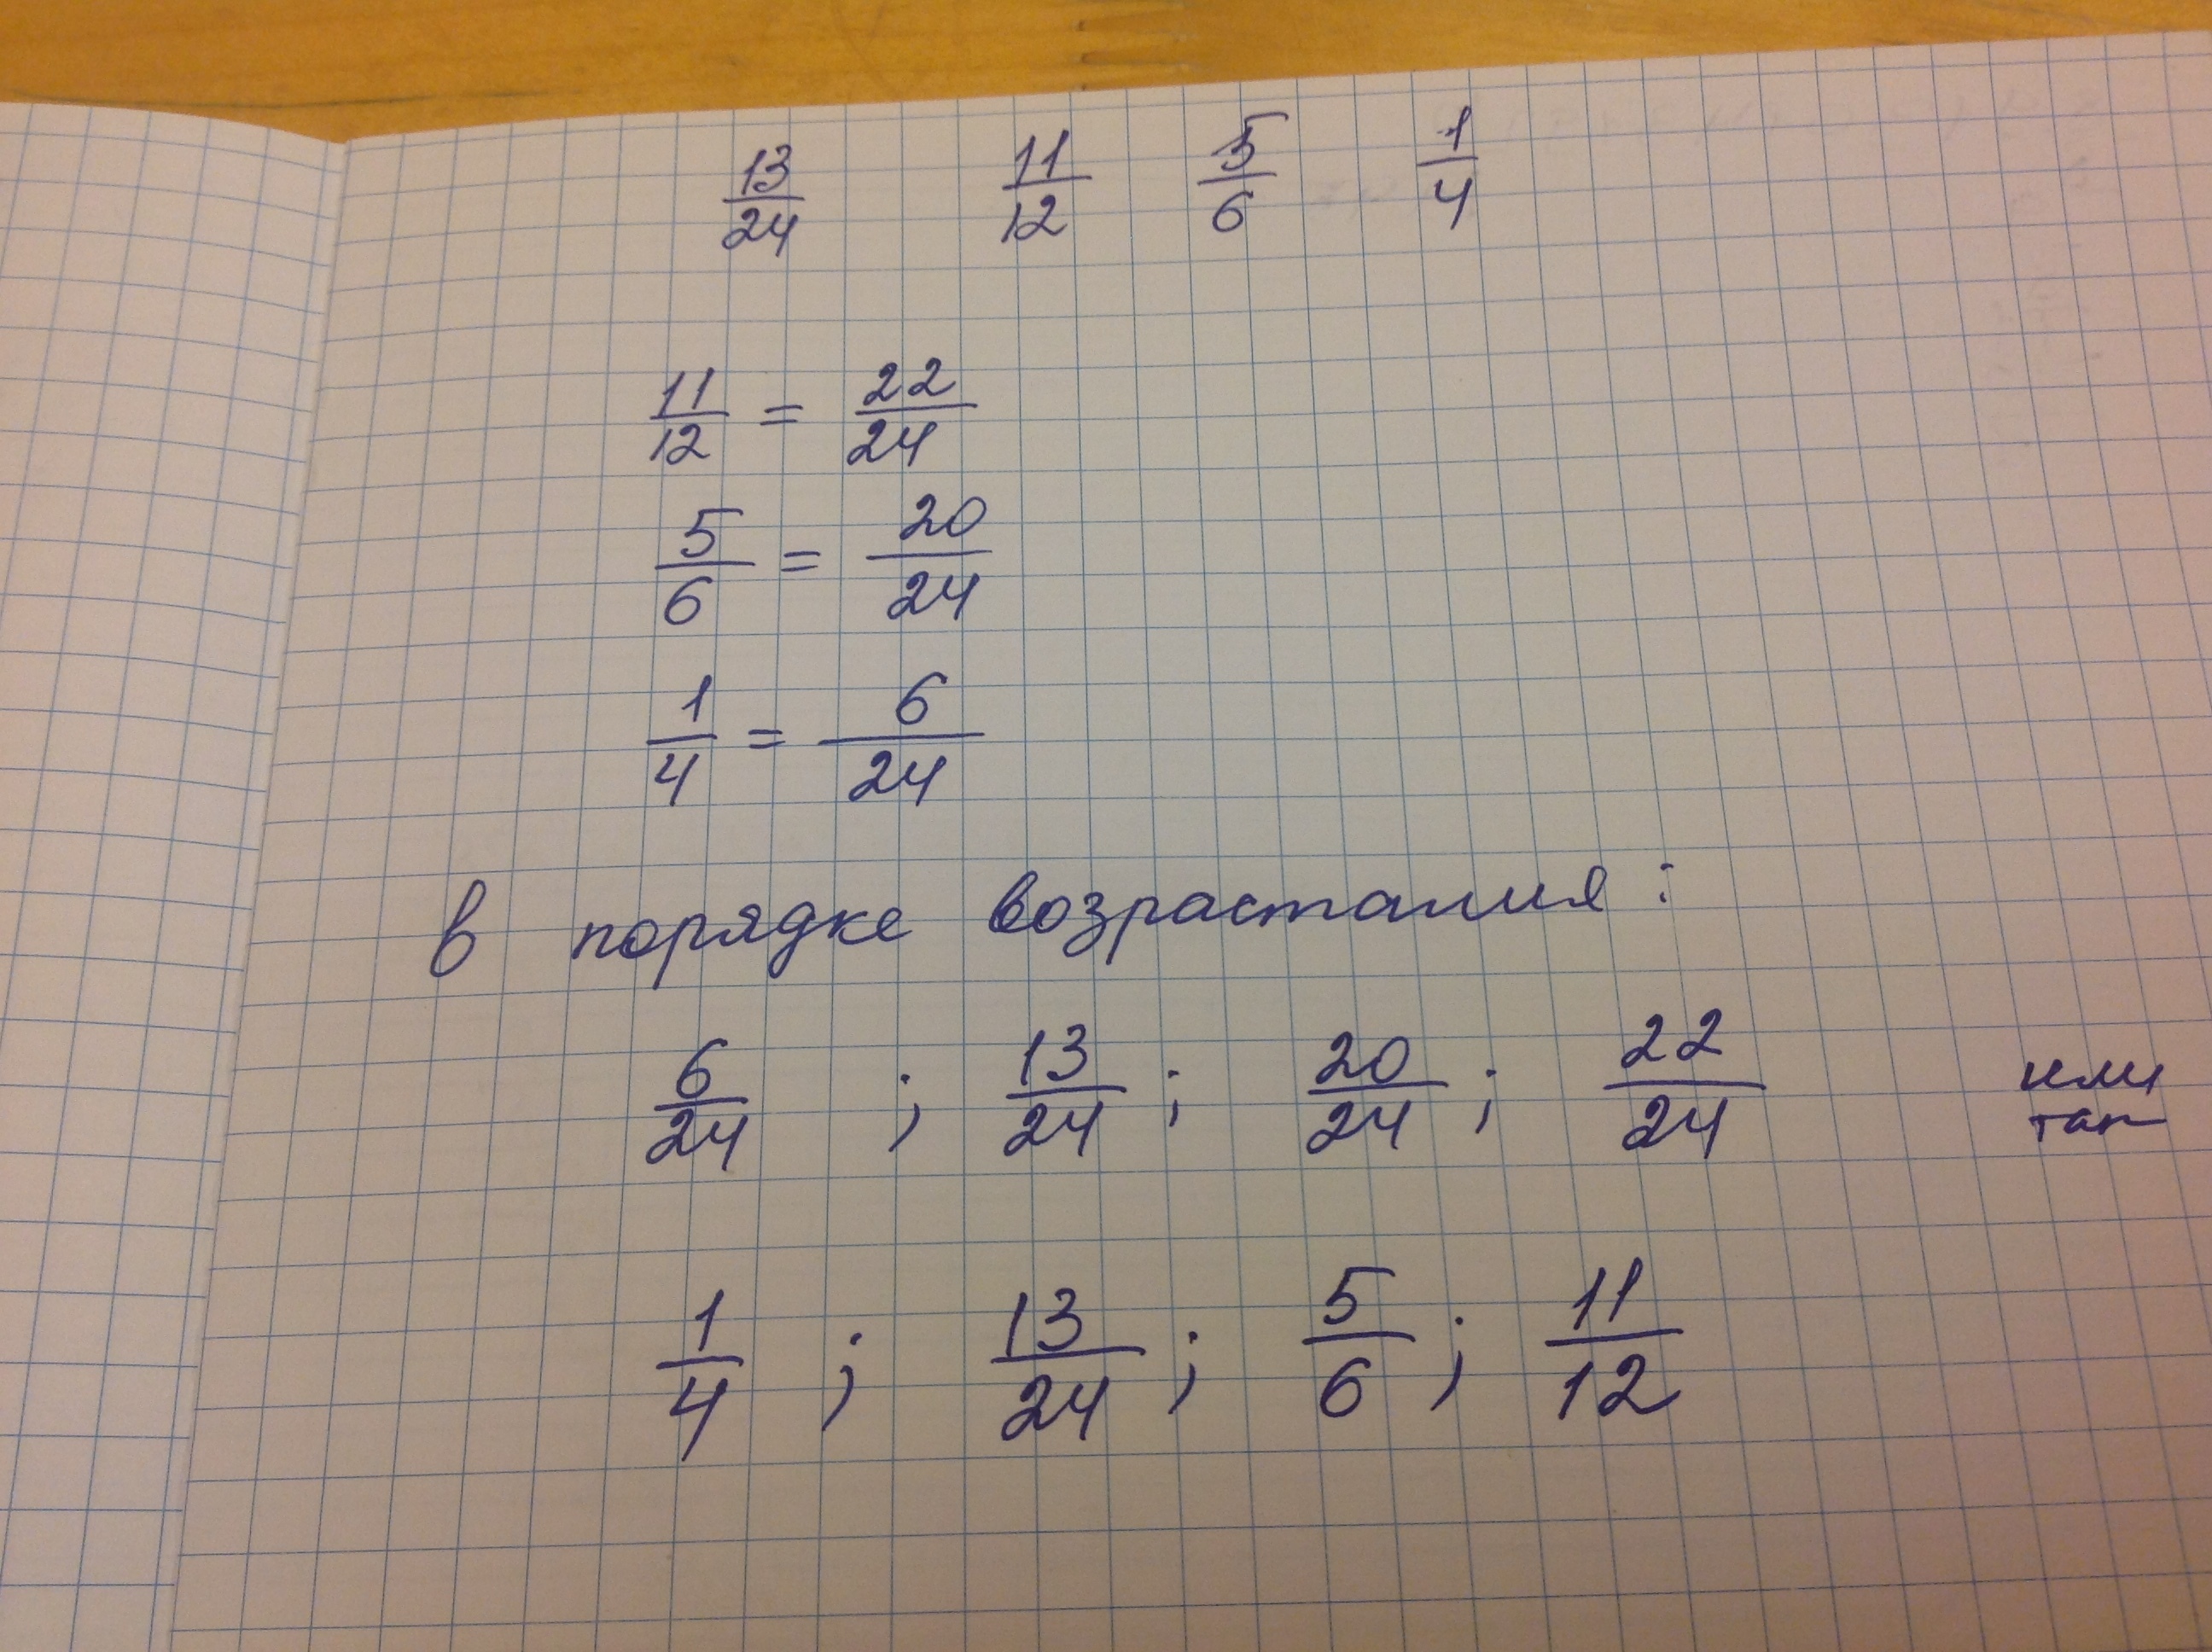 13/24 11/12 5/6 1/4
11/12 = 22/24
5/6 = 20/24
1/4 = 6/24
в порядке возрастания:
6/24 ; 13/24 ; 20/24 ; 22/24 или
так
1/4 ; 13/24 ; 5/6 ; 11/12